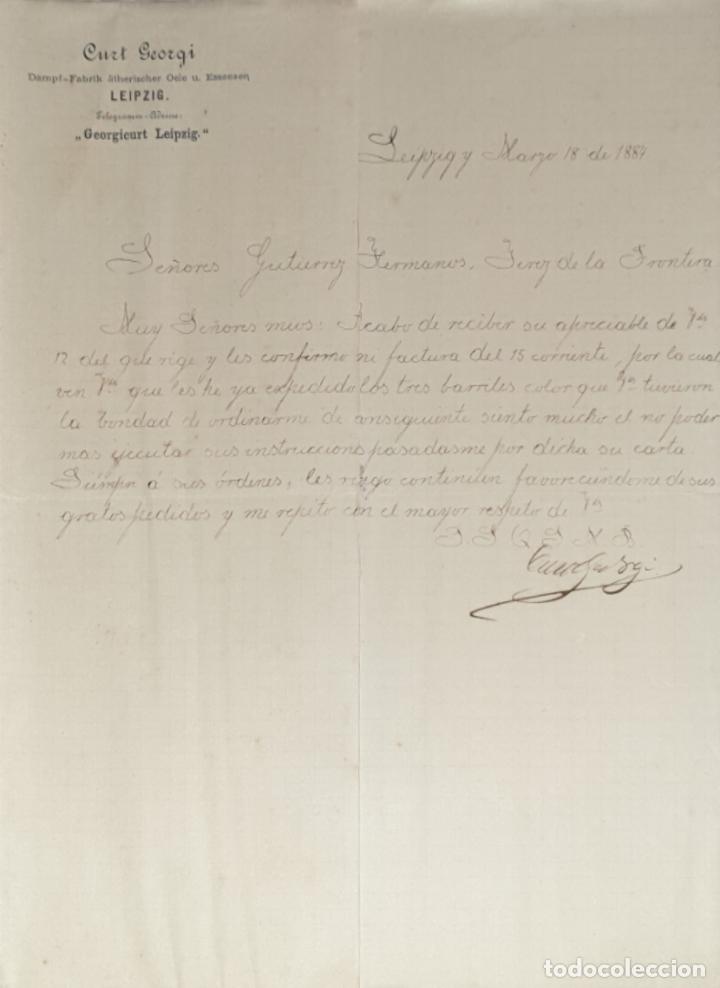 Curt Georgi
Dampf-Fabrik ätherischer Oele u. Essenzen
LEIPZIG.
Telegramm-Adresse:
„Georgicurt Leipzig."
Leipzig y Marzo 18 de 1887
Señores Gutierrez Hermanos, Jerez de la Frontera
Muy Señores mios: Acabo de recibir su apreciable de Vds
12 del que rige y les confirmo mi factura del 15 corriente, por la cual
ven Vds que les he ya expedido los tres barriles color que Vds tuvieron
la bondad de ordinarme de anseguiente siento mucho el no poder
mas ejecutar sus instrucciones pasadasme por dicha su carta.
Siempre á sus órdenes, les ruego continuen favoreciendome de sus
gratos pedidos y me repito con el mayor respeto de Vds
S. S. Q. S. M. B.
Curt Georgi
todocoleccion